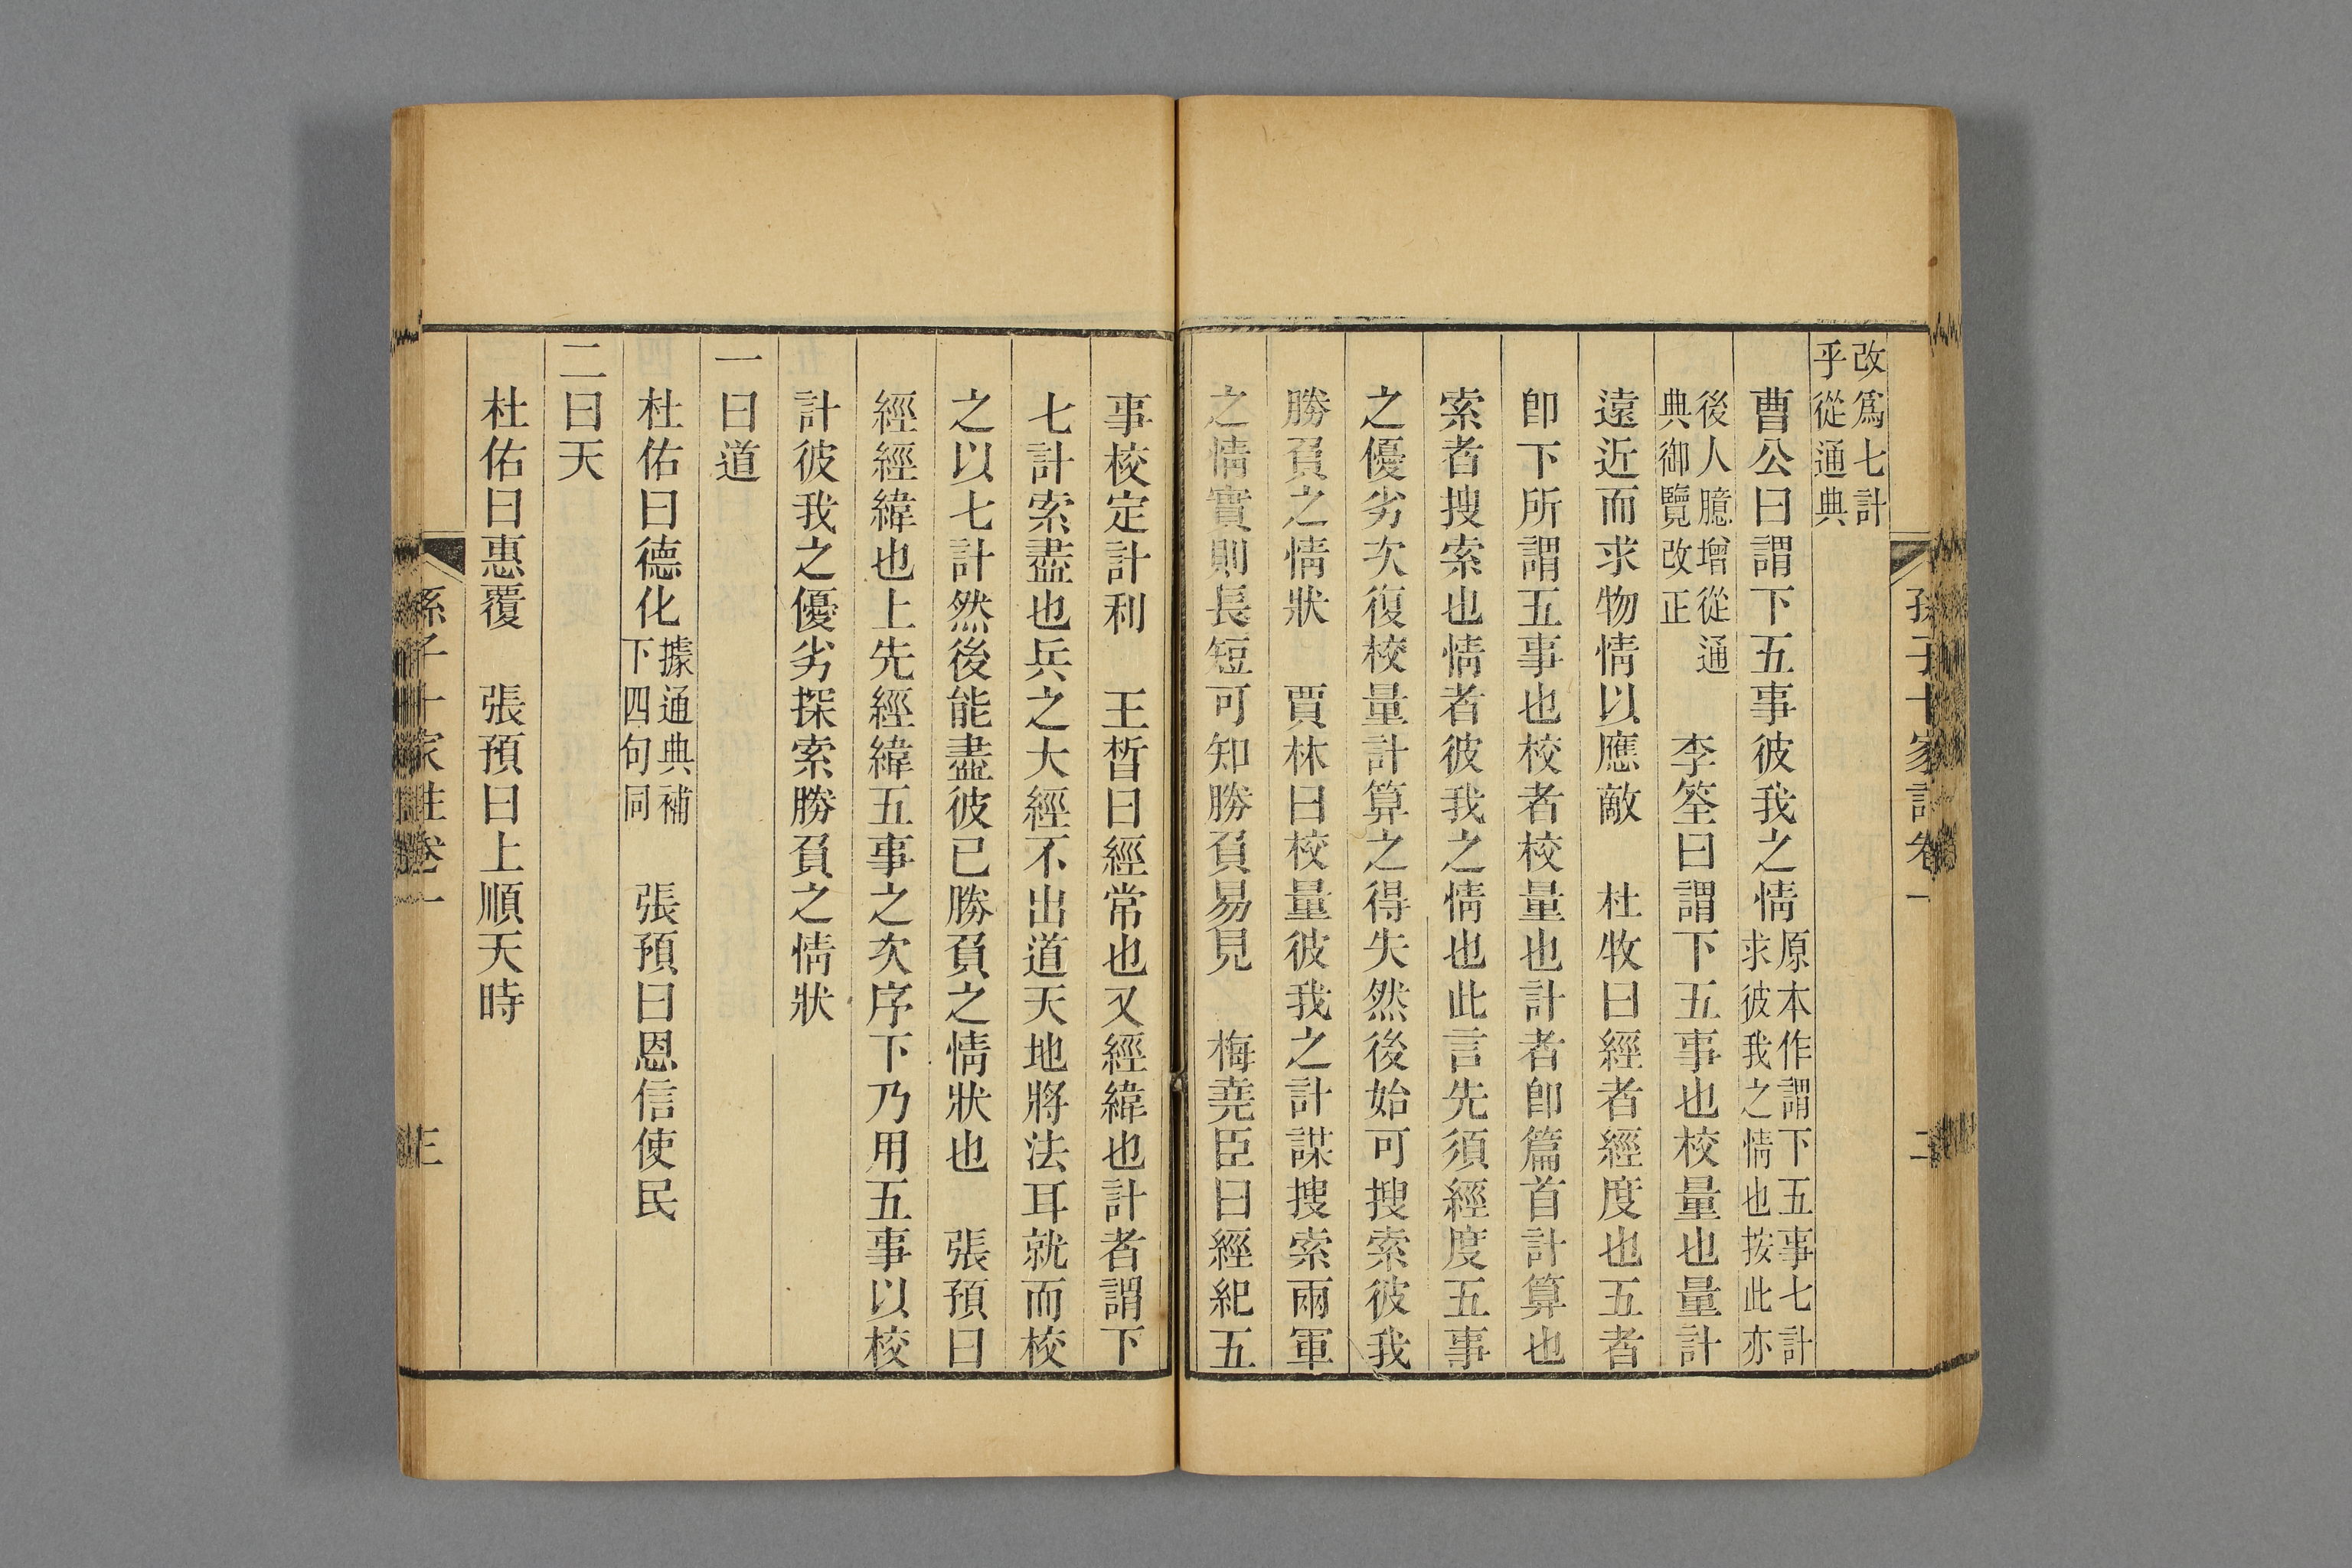 孫子十家註卷一 二
改爲七計
乎從通典
曹公曰謂下五事彼我之情原本作謂下五事七計
求彼我之情也按此亦
後人臆增從通
典御覽改正 李筌曰謂下五事也校量也量計
遠近而求物情以應敵 杜牧曰經者經度也五者
卽下所謂五事也校者校量也計者卽篇首計算也
索者搜索也情者彼我之情也此言先須經度五事
之優劣次復校量計算之得失然後始可搜索彼我
勝負之情狀 賈林曰校量彼我之計謀搜索兩軍
之情實則長短可知勝負易見 梅堯臣曰經紀五
事校定計利 王晳曰經常也又經緯也計者謂下
七計索盡也兵之大經不出道天地將法耳就而校
之以七計然後能盡彼已勝負之情狀也 張預曰
經經緯也上先經緯五事之次序下乃用五事以校
計彼我之優劣探索勝負之情狀
一曰道
杜佑曰德化據通典補
下四句同 張預曰恩信使民
二曰天
杜佑曰惠覆 張預曰上順天時
孫子十家註卷一 三